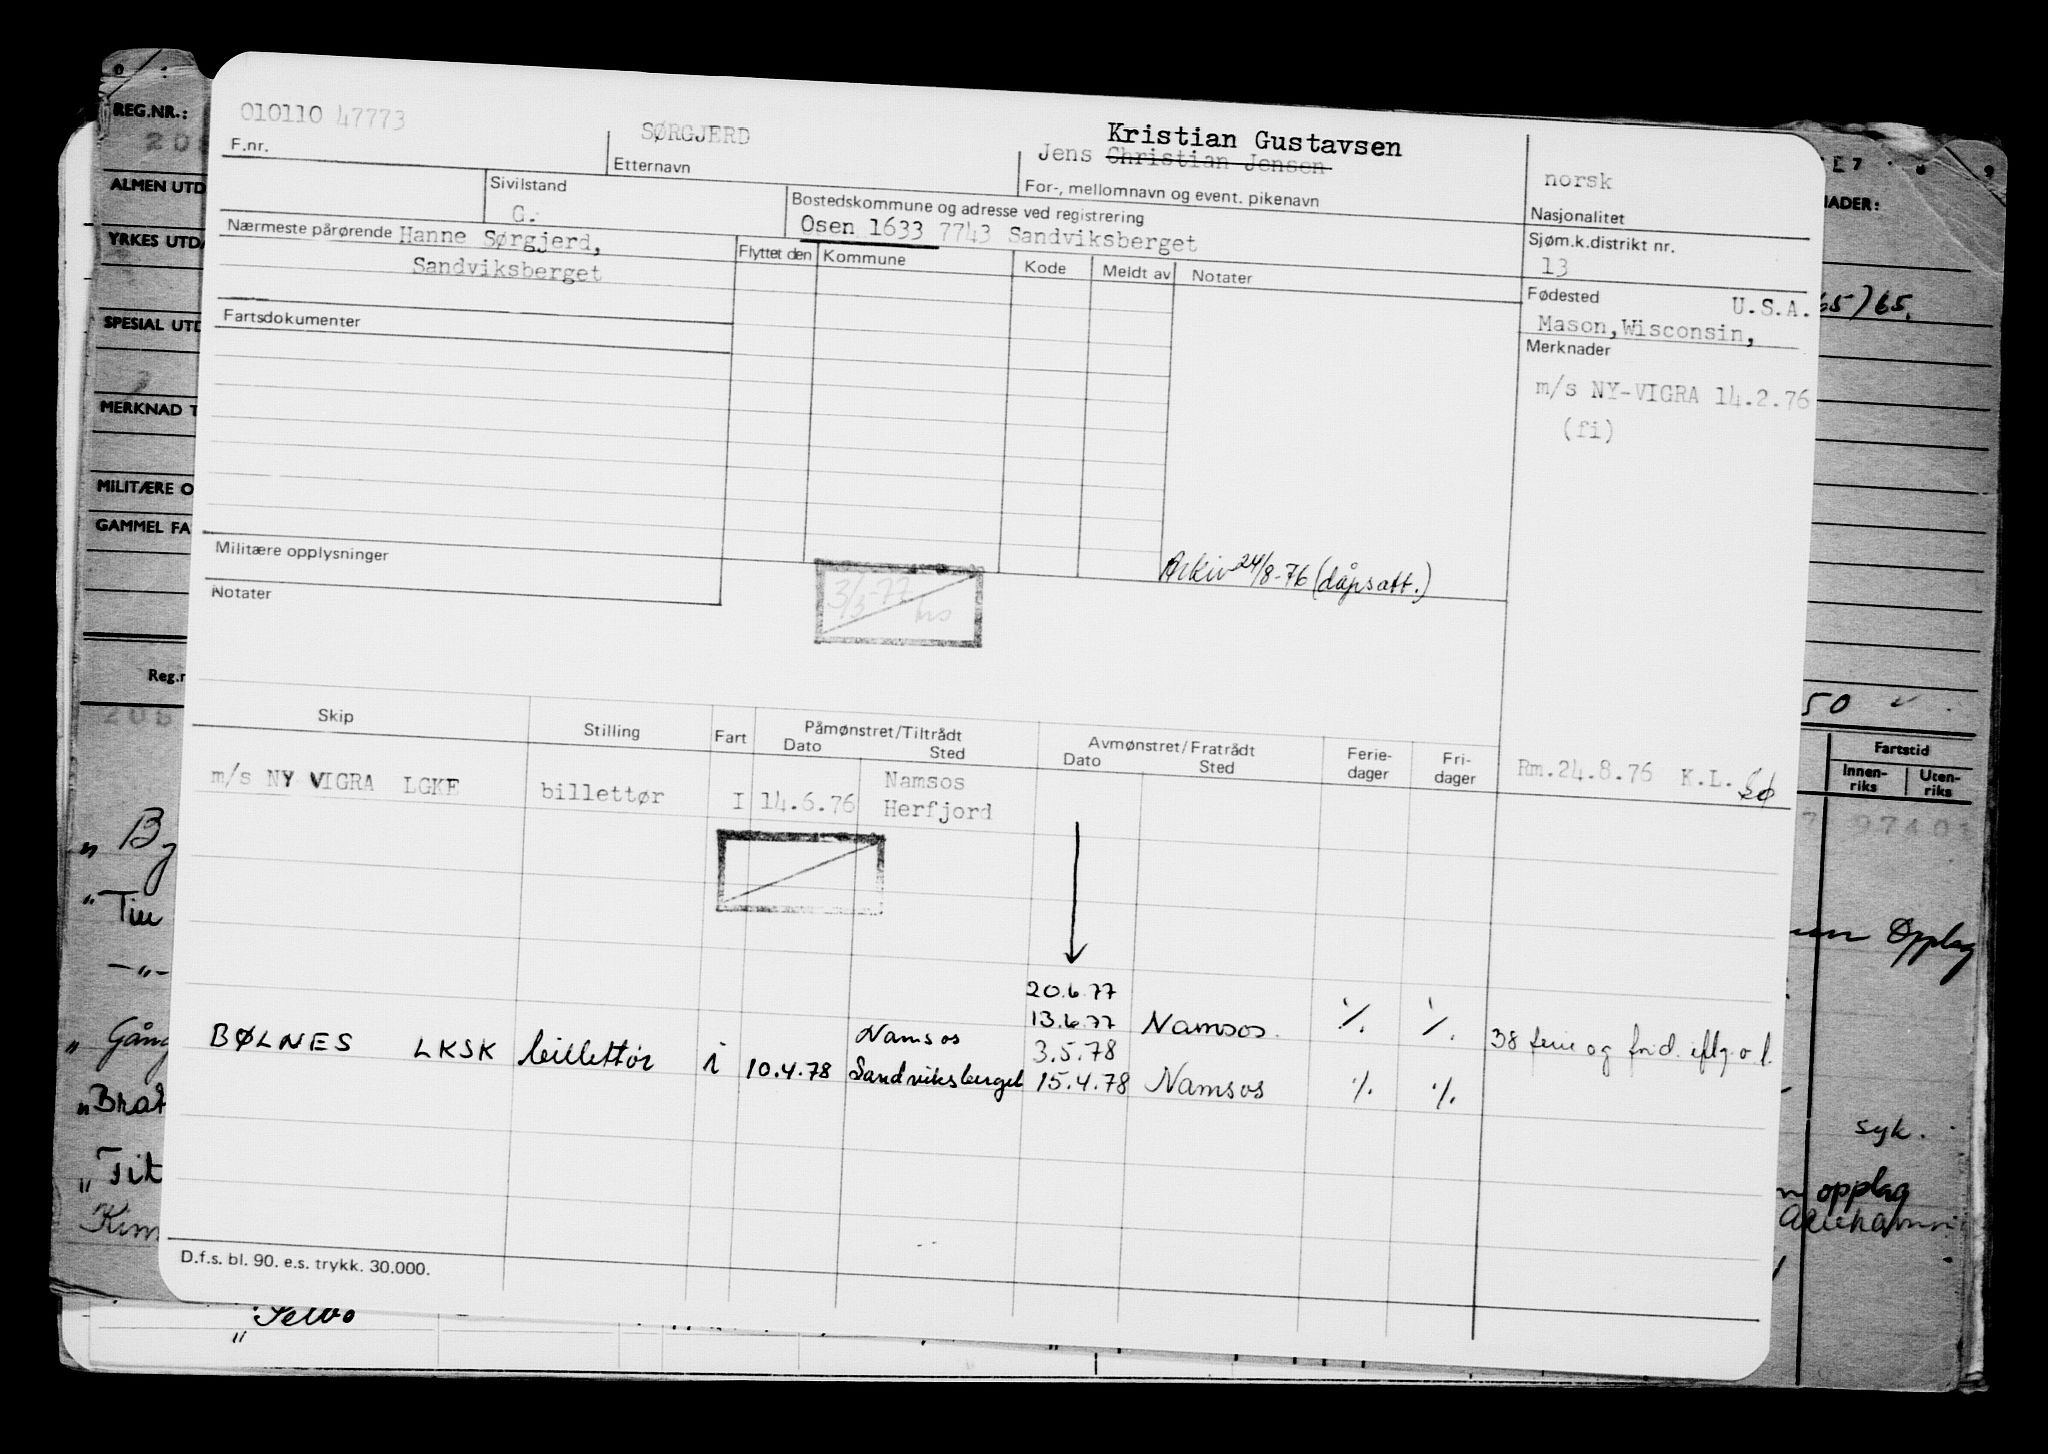 010110 47773
F.nr.
SØRGJERD
Etternavn
Kristian Gustavsen
Jens Christian Jensen
For-, mellomnavn og event. pikenavn
norsk
Nasjonalitet
Sivilstand
G.
Bostedskommune og adresse ved registrering
Osen 1633 7743 Sandviksberget
Sjøm.k.distrikt nr.
13
Nærmeste pårørende Hanne Sørgjerd,
Sandviksberget
Flyttet den Kommune Kode Meldt av Notater
Fødested U.S.A.
Mason, Wisconsin,
Fartsdokumenter
Merknader
m/s NY-VIGRA 14.2.76
(fi)
Militære opplysninger
Arkiv 24/8-76 (dåpsatt.)
Notater
3/3-77
Skip Stilling Fart Påmønstret/Tiltrådt Avmønstret/Fratrådt Ferie- Fri-
Dato Sted Dato Sted dager dager
m/s NY VIGRA LGKE billettør I 14.6.76 Namsos
Herfjord
Rm.24.8.76 K.L.
20.6.77
13.6.77 Namsos. ٪. ٪. 38 ferie og frid. iflg. o.l.
BØLNES LKSK billettør i 10.4.78 Namsos
Sandviksberget
3.5.78
15.4.78 Namsos ٪. ٪.
D.f.s. bl. 90. e.s. trykk. 30.000.
REG.NR.:
ALMEN UTD
YRKES UTDA
SPESIAL UTD
MERKNAD T
MILITÆRE O
GAMMEL FA
Reg.n
NADER:
65)65.
50
Fartstid
Innen-
riks
Uten-
riks
97401
opplag
syk.
opplag